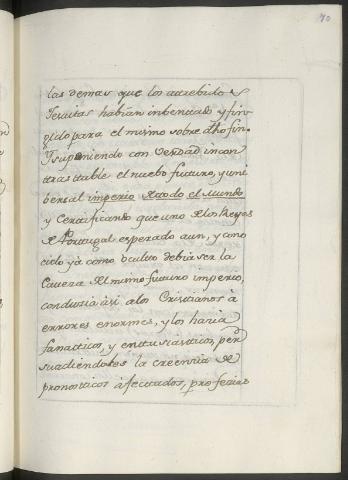 70
las demas que los atrebidos
Jesuitas habian inbentado y fin
gido para el mismo sobredho fin.
Y suponiendo con verdad incon
trastable el nuebo futuro, y uni
bersal imperio de todo el Mundo
y Certificando que uno de los Reyes
de Portugal esperado aun, y cono
cido yà como oculto debia ser la
Caveza del mismo futuro imperio,
conducia asi a los Cristianos à
errores enormes, y los haria
fanaticos, y entusiasticos, per
suadiendoles la creencia de
pronosticos afectados, profecias